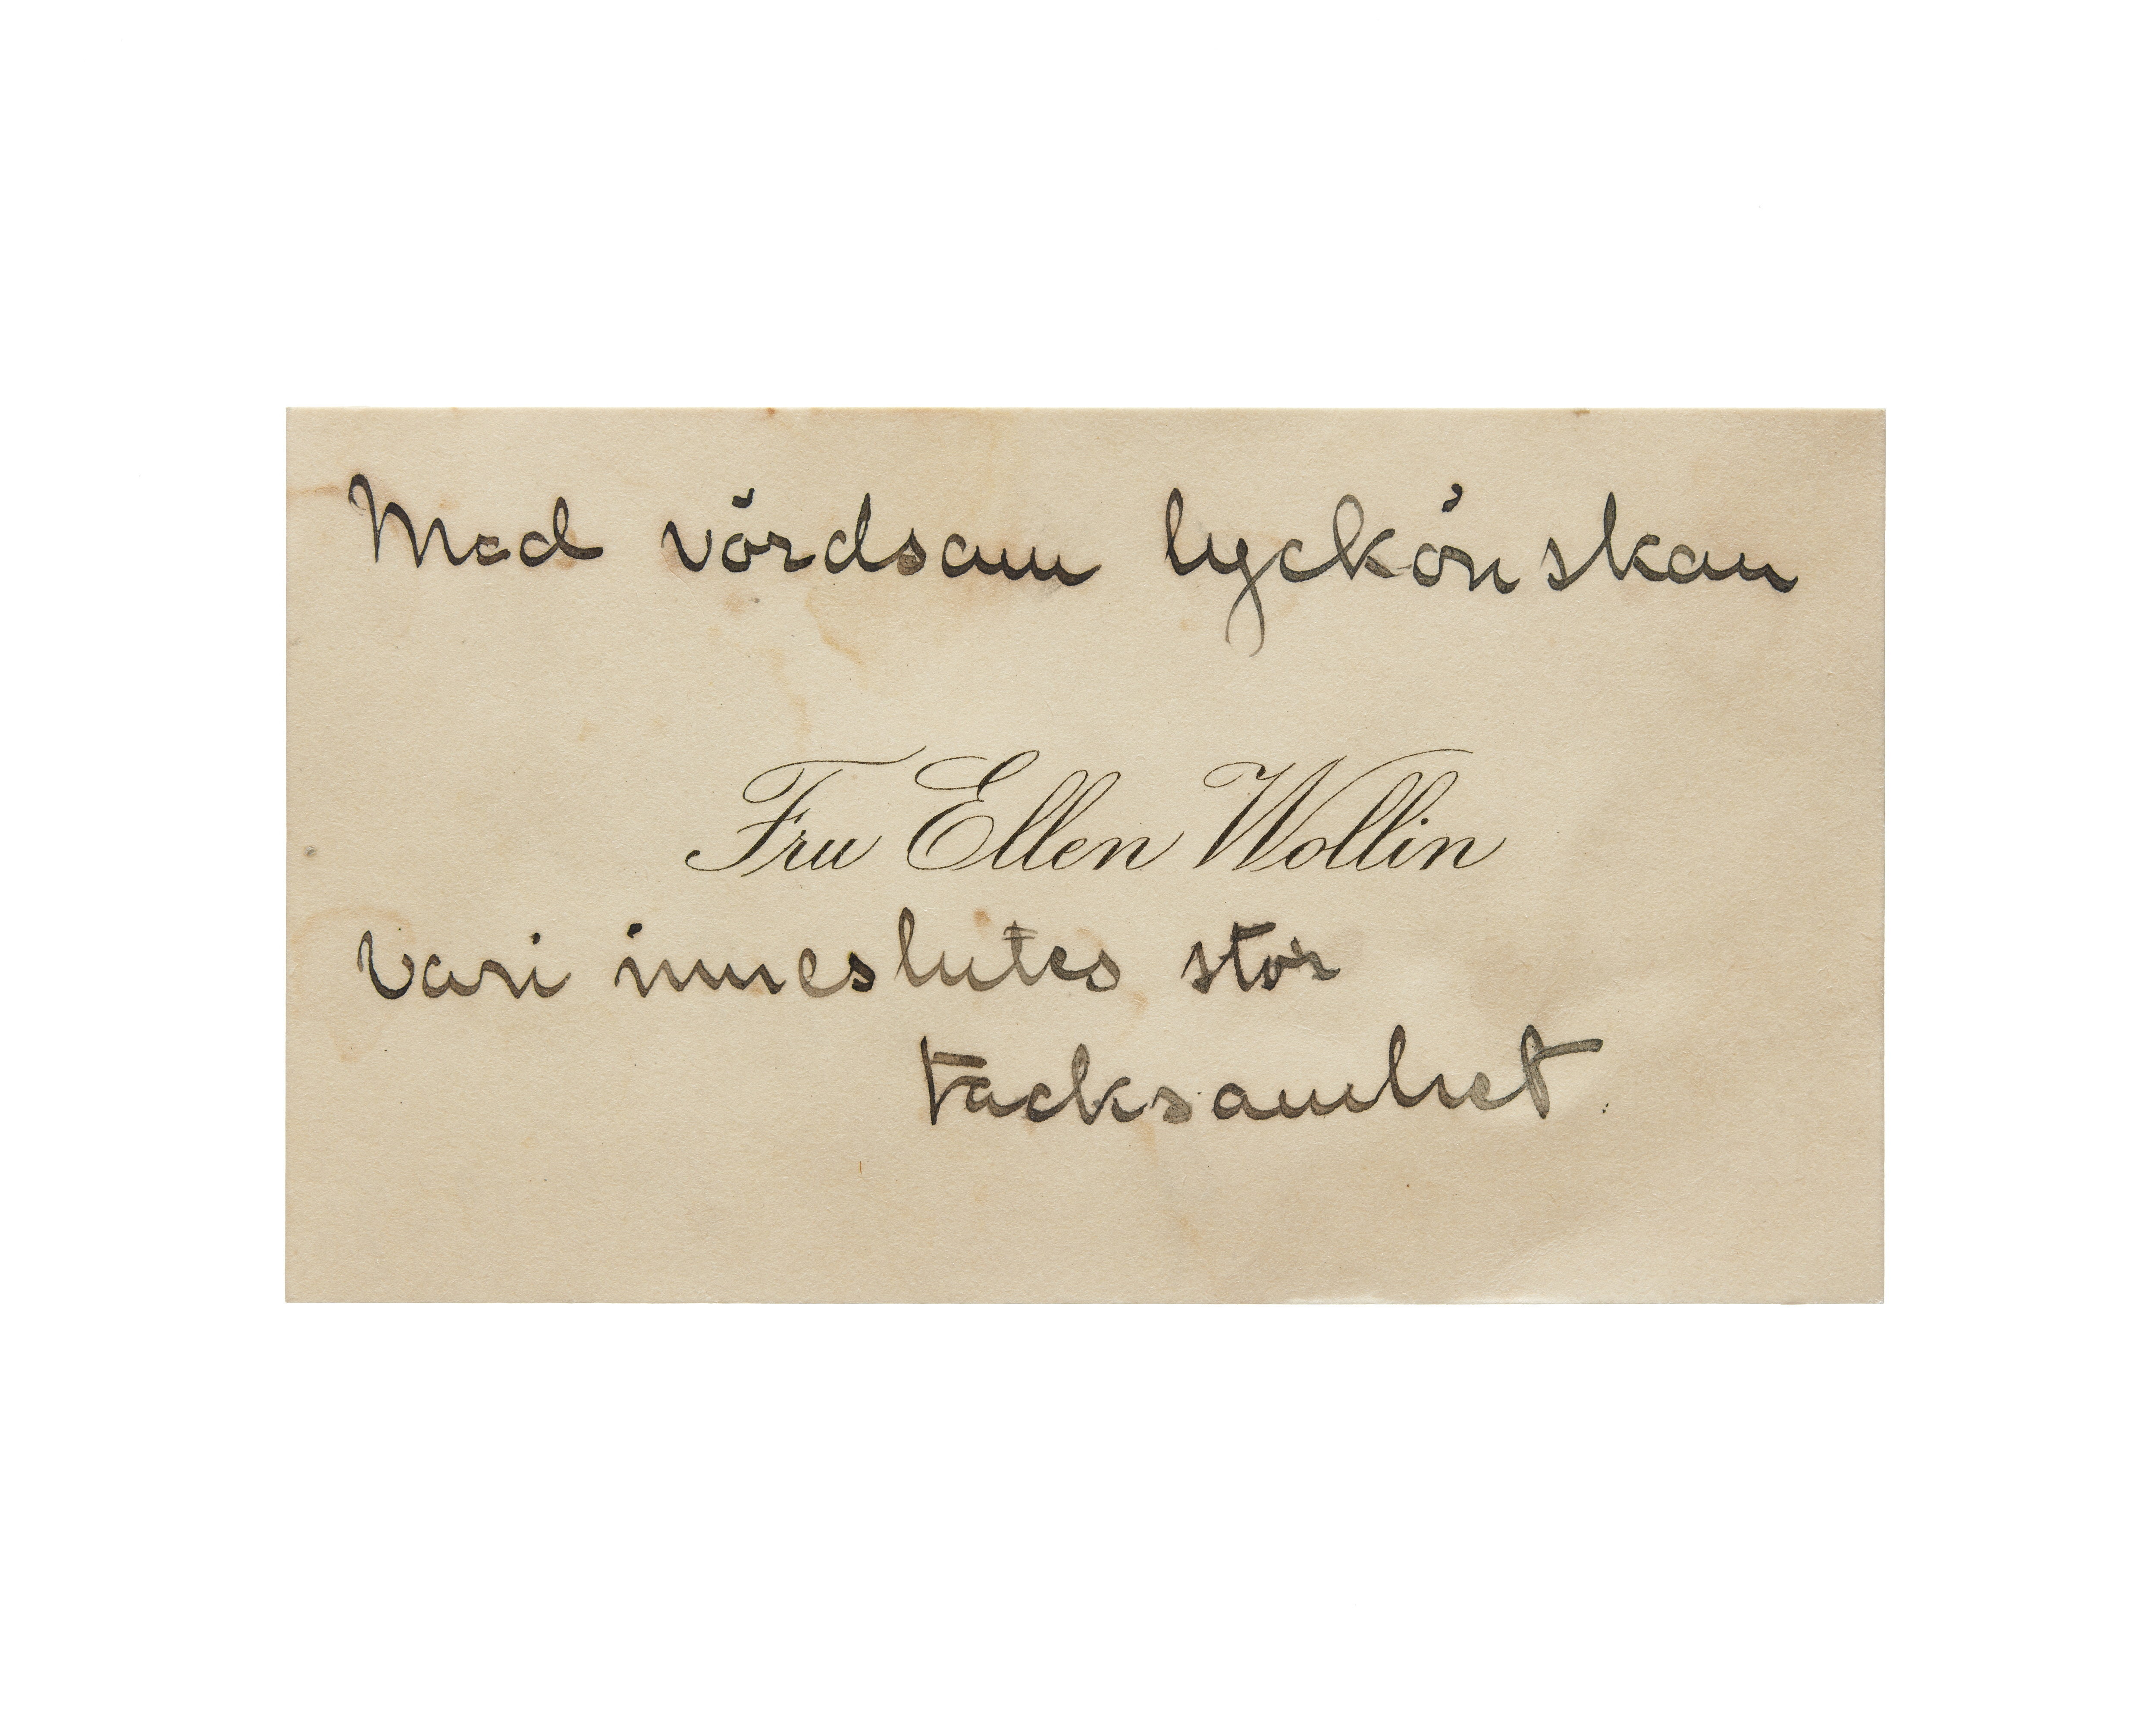 Med vördsam lyckönskan
Fru Ellen Wollin
vari inneslutes stor
tacksamhet.